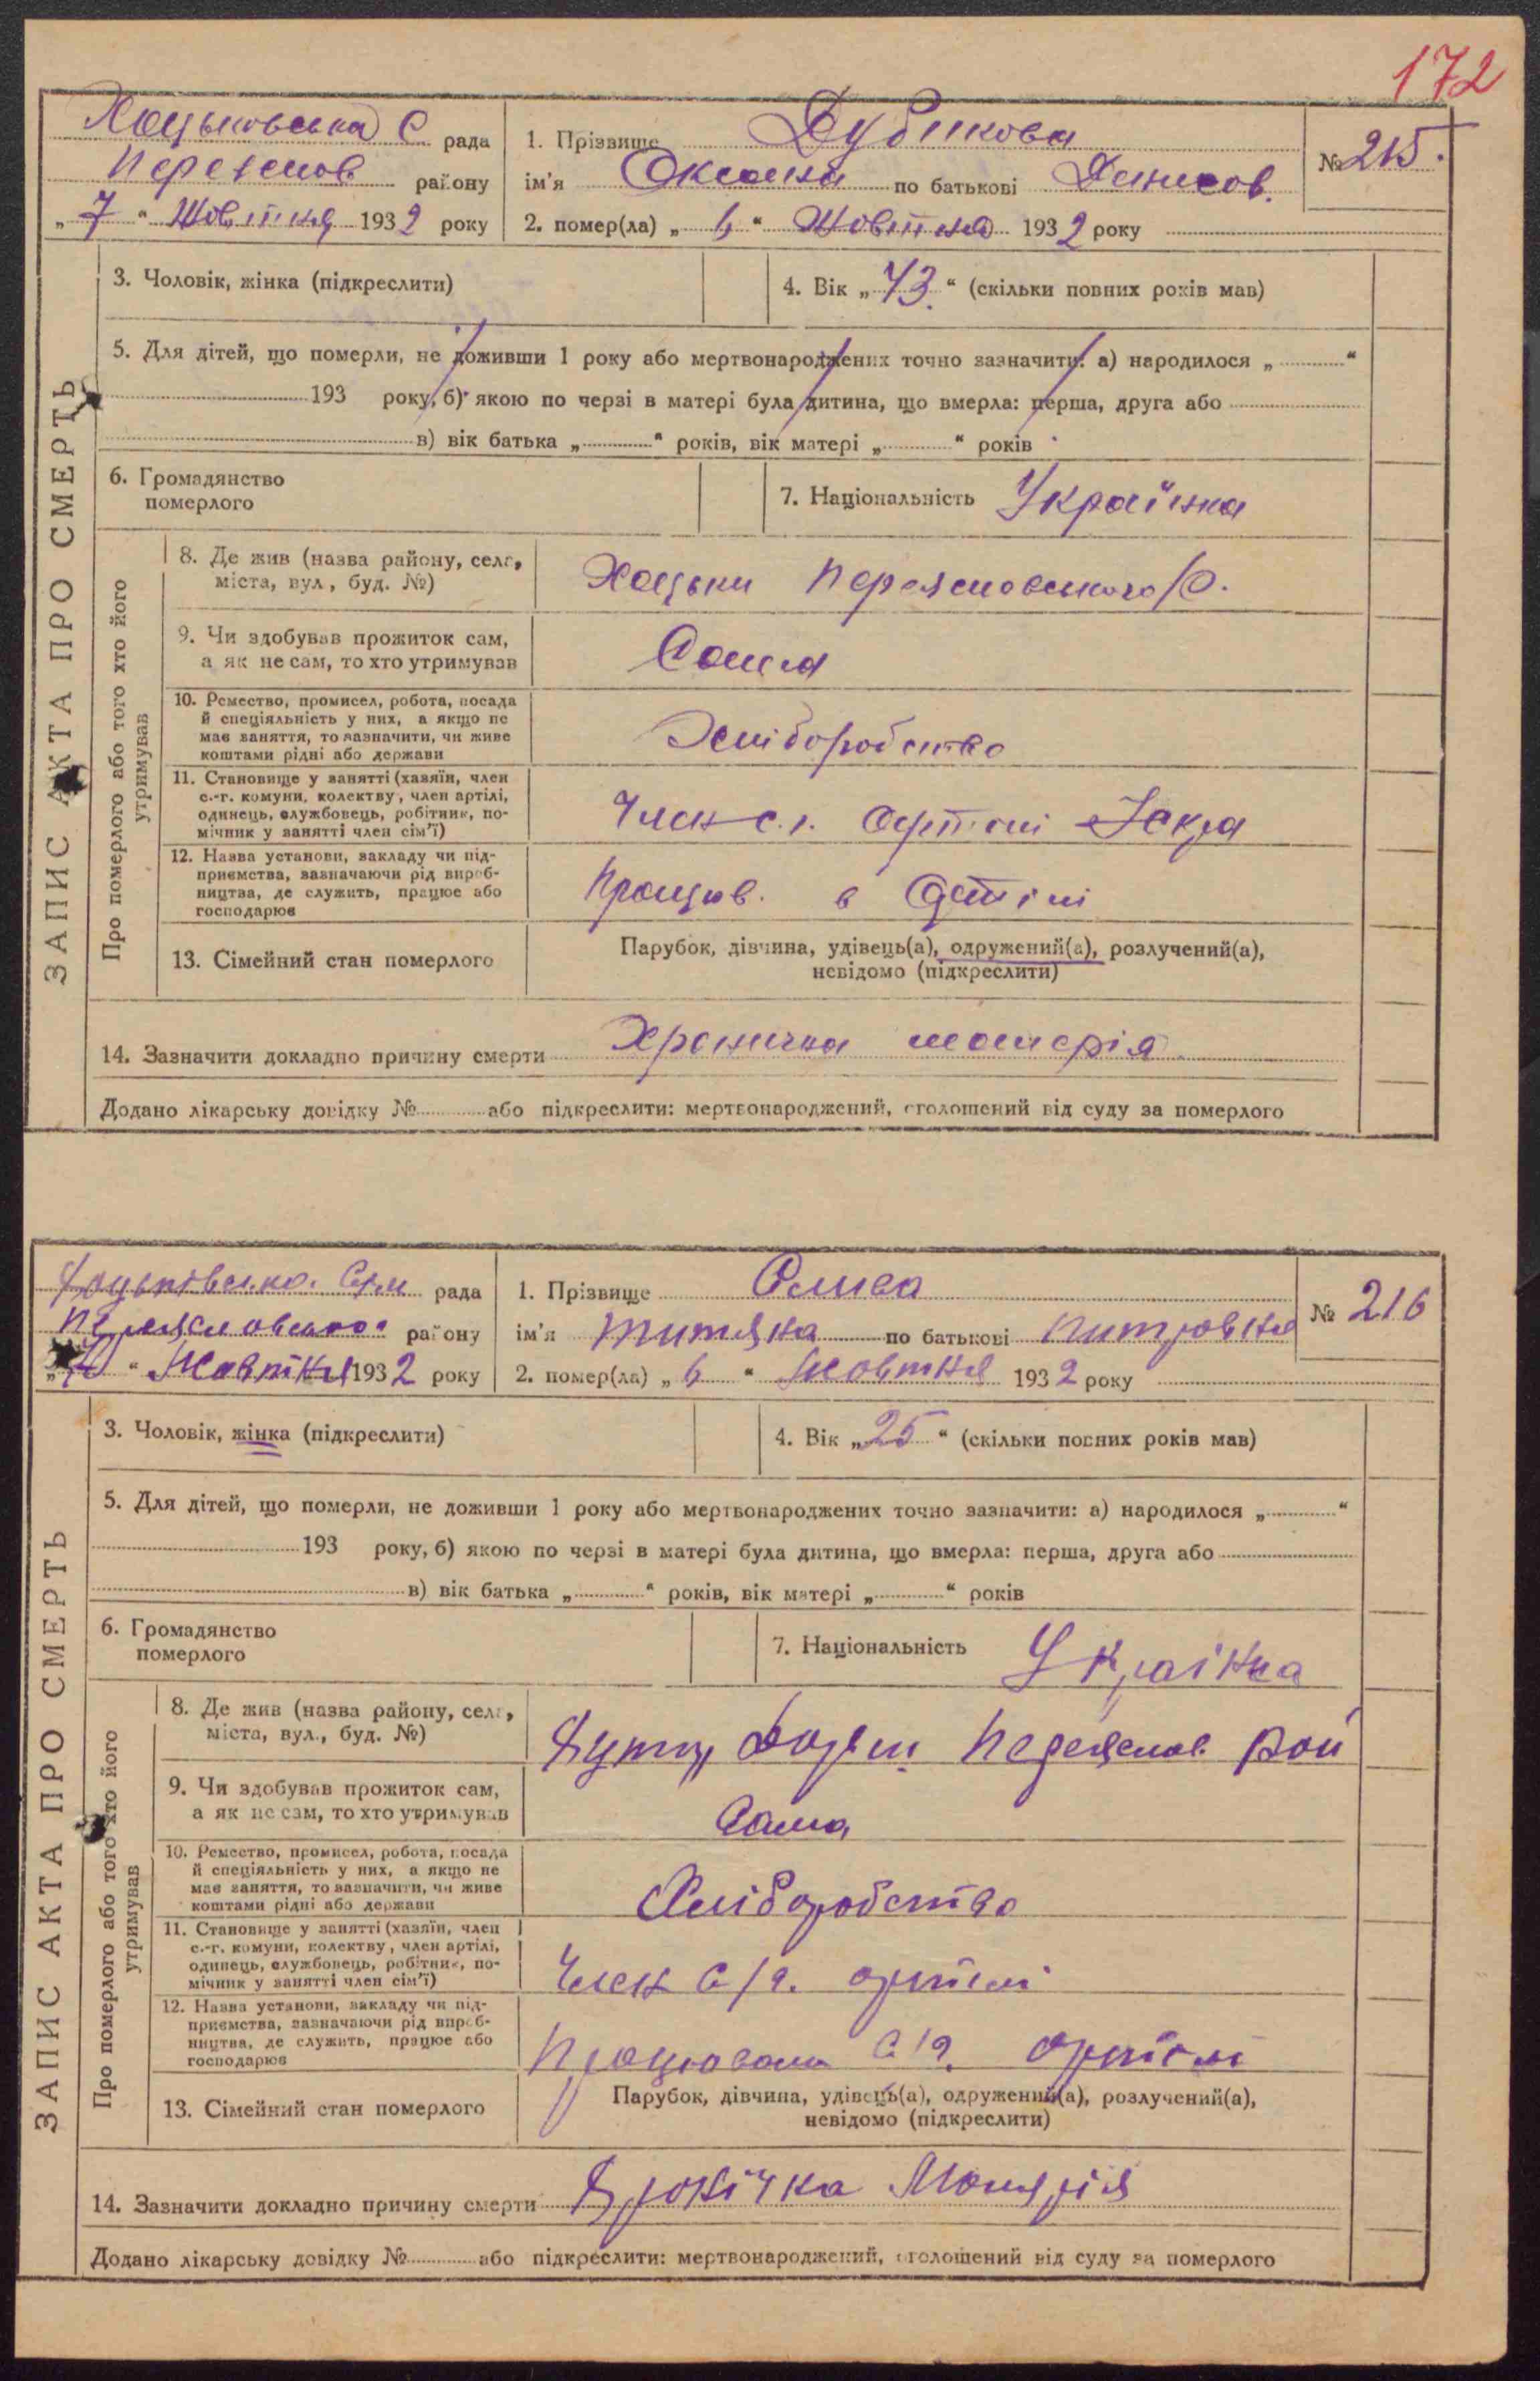 172
Хоцьковська С рада
Переяслов району
„ 7 “ Жовтня 1932 року
1. Прізвище Дубікова
ім'я Оксана по батькові Денисов.
№ 215.
2. помер(ла) „ 6 “ Жовтня 1932 року
3. Чоловік, жінка (підкреслити)
4. Вік „ 43 “ (скільки повних років мав)
5. Для дітей, що померли, не доживши 1 року або мертвонароджених точно зазначити: а) народилося „ “
193 року, б) якою по черзі в матері була дитина, що вмерла: перша, друга або
в) вік батька „ “ років, вік матері „ “ років
6. Громадянство
померлого
7. Національність Українка
ЗАПИС АКТА ПРО СМЕРТЬ
Про померлого або того хто його
утримував
8. Де жив (назва району, села,
міста, вул, буд. №)
Хоцьки Переясловського Р.
9. Чи здобував прожиток сам,
а як не сам, то хто утримував
Сама
10. Ремество, промисел, робота, посада
й спеціяльність у них, а якщо не
має заняття, то зазначити, чи живе
коштами рідні або держави
Хліборобство
11. Становище у занятті (хазяїн, член
с.-г. комуни, колектву, член артілі,
одинець, службовець, робітник, по-
мічник у занятті член сім'ї)
Член с.г. артілі Іскра
12. Назва установи, закладу чи під-
приємства, зазначаючи рід вироб-
ництва, де служить, працює або
господарює
Працюв. в Артілі
13. Сімейний стан померлого
Парубок, дівчина, удівець(а), одружений(а), розлучений(а),
невідомо (підкреслити)
14. Зазначити докладно причину смерти Хроничка малерія
Додано лікарську довідку № або підкреслити: мертвонароджений, оголошений від суду за померлого
Хоцьківська. Сіль рада
Переясловського району
“ Жовтня 1932 року
1. Прізвище Олиса
ім'я Титяна по батькові Питровна
№ 216
2. помер(ла) „ 6 “ Жовтня 1932 року
3. Чоловік, жінка (підкреслити)
4. Вік „ 25 “ (скільки повних років мав)
5. Для дітей, що померли, не доживши 1 року або мертвонароджених точно зазначити: а) народилося „ “
193 року, б) якою по черзі в матері була дитина, що вмерла: перша, друга або
в) вік батька „ “ років, вік матері „ “ років
6. Громадянство
померлого
7. Національність Українка
ЗАПИС АКТА ПРО СМЕРТЬ
Про померлого або того хто його
утримував
8. Де жив (назва району, села,
міста, вул., буд. №)
Хутір Переяслов. рай
9. Чи здобував прожиток сам,
а як не сам, то хто утримував
Сама
10. Ремество, промисел, робота, посада
й спеціяльність у них, а якщо не
має заняття, то зазначити, чи живе
коштами рідні або держави
Хліборобство
11. Становище у занятті (хазяїн, член
с.-г. комуни, колектву, член артілі,
одинець, службовець, робітник, по-
мічник у занятті член сім'ї)
Член С/г. артілі
12. Назва установи, закладу чи під-
приємства, зазначаючи рід вироб-
ництва, де служить, працює або
господарює
Працювала С/г. артілі
13. Сімейний стан померлого
Парубок, дівчина, удівець(а), одружений(а), розлучений(а),
невідомо (підкреслити)
14. Зазначити докладно причину смерти Хронічка Малярія
Додано лікарську довідку № або підкреслити: мертвонароджений, оголошений від суду за померлого